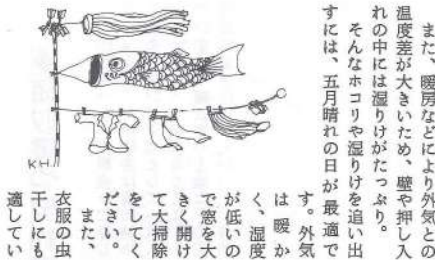 また、暖房などにより外気との
温度差が大きいため、壁や押し入
れの中には湿りけがたっぷり。
そんなホコリや湿りけを追い出
すには、五月晴れの日が最適で
す。外気
は暖か
く、湿度
が低いの
で窓を大
きく開け
て大掃除
をしてく
ださい。
また、
衣服の虫
干しにも
適してい
K.H